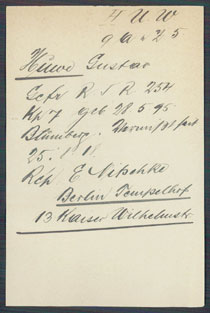 4 U W
9 a . 25
Huwe Gustav
Gefr R I R 254
Kp 7 geb 28 5 95
Blumberg. Verwundet
25.
Rch E Nitschke
Berlin Tempelhof
13 Kaiser Wilhelmstr